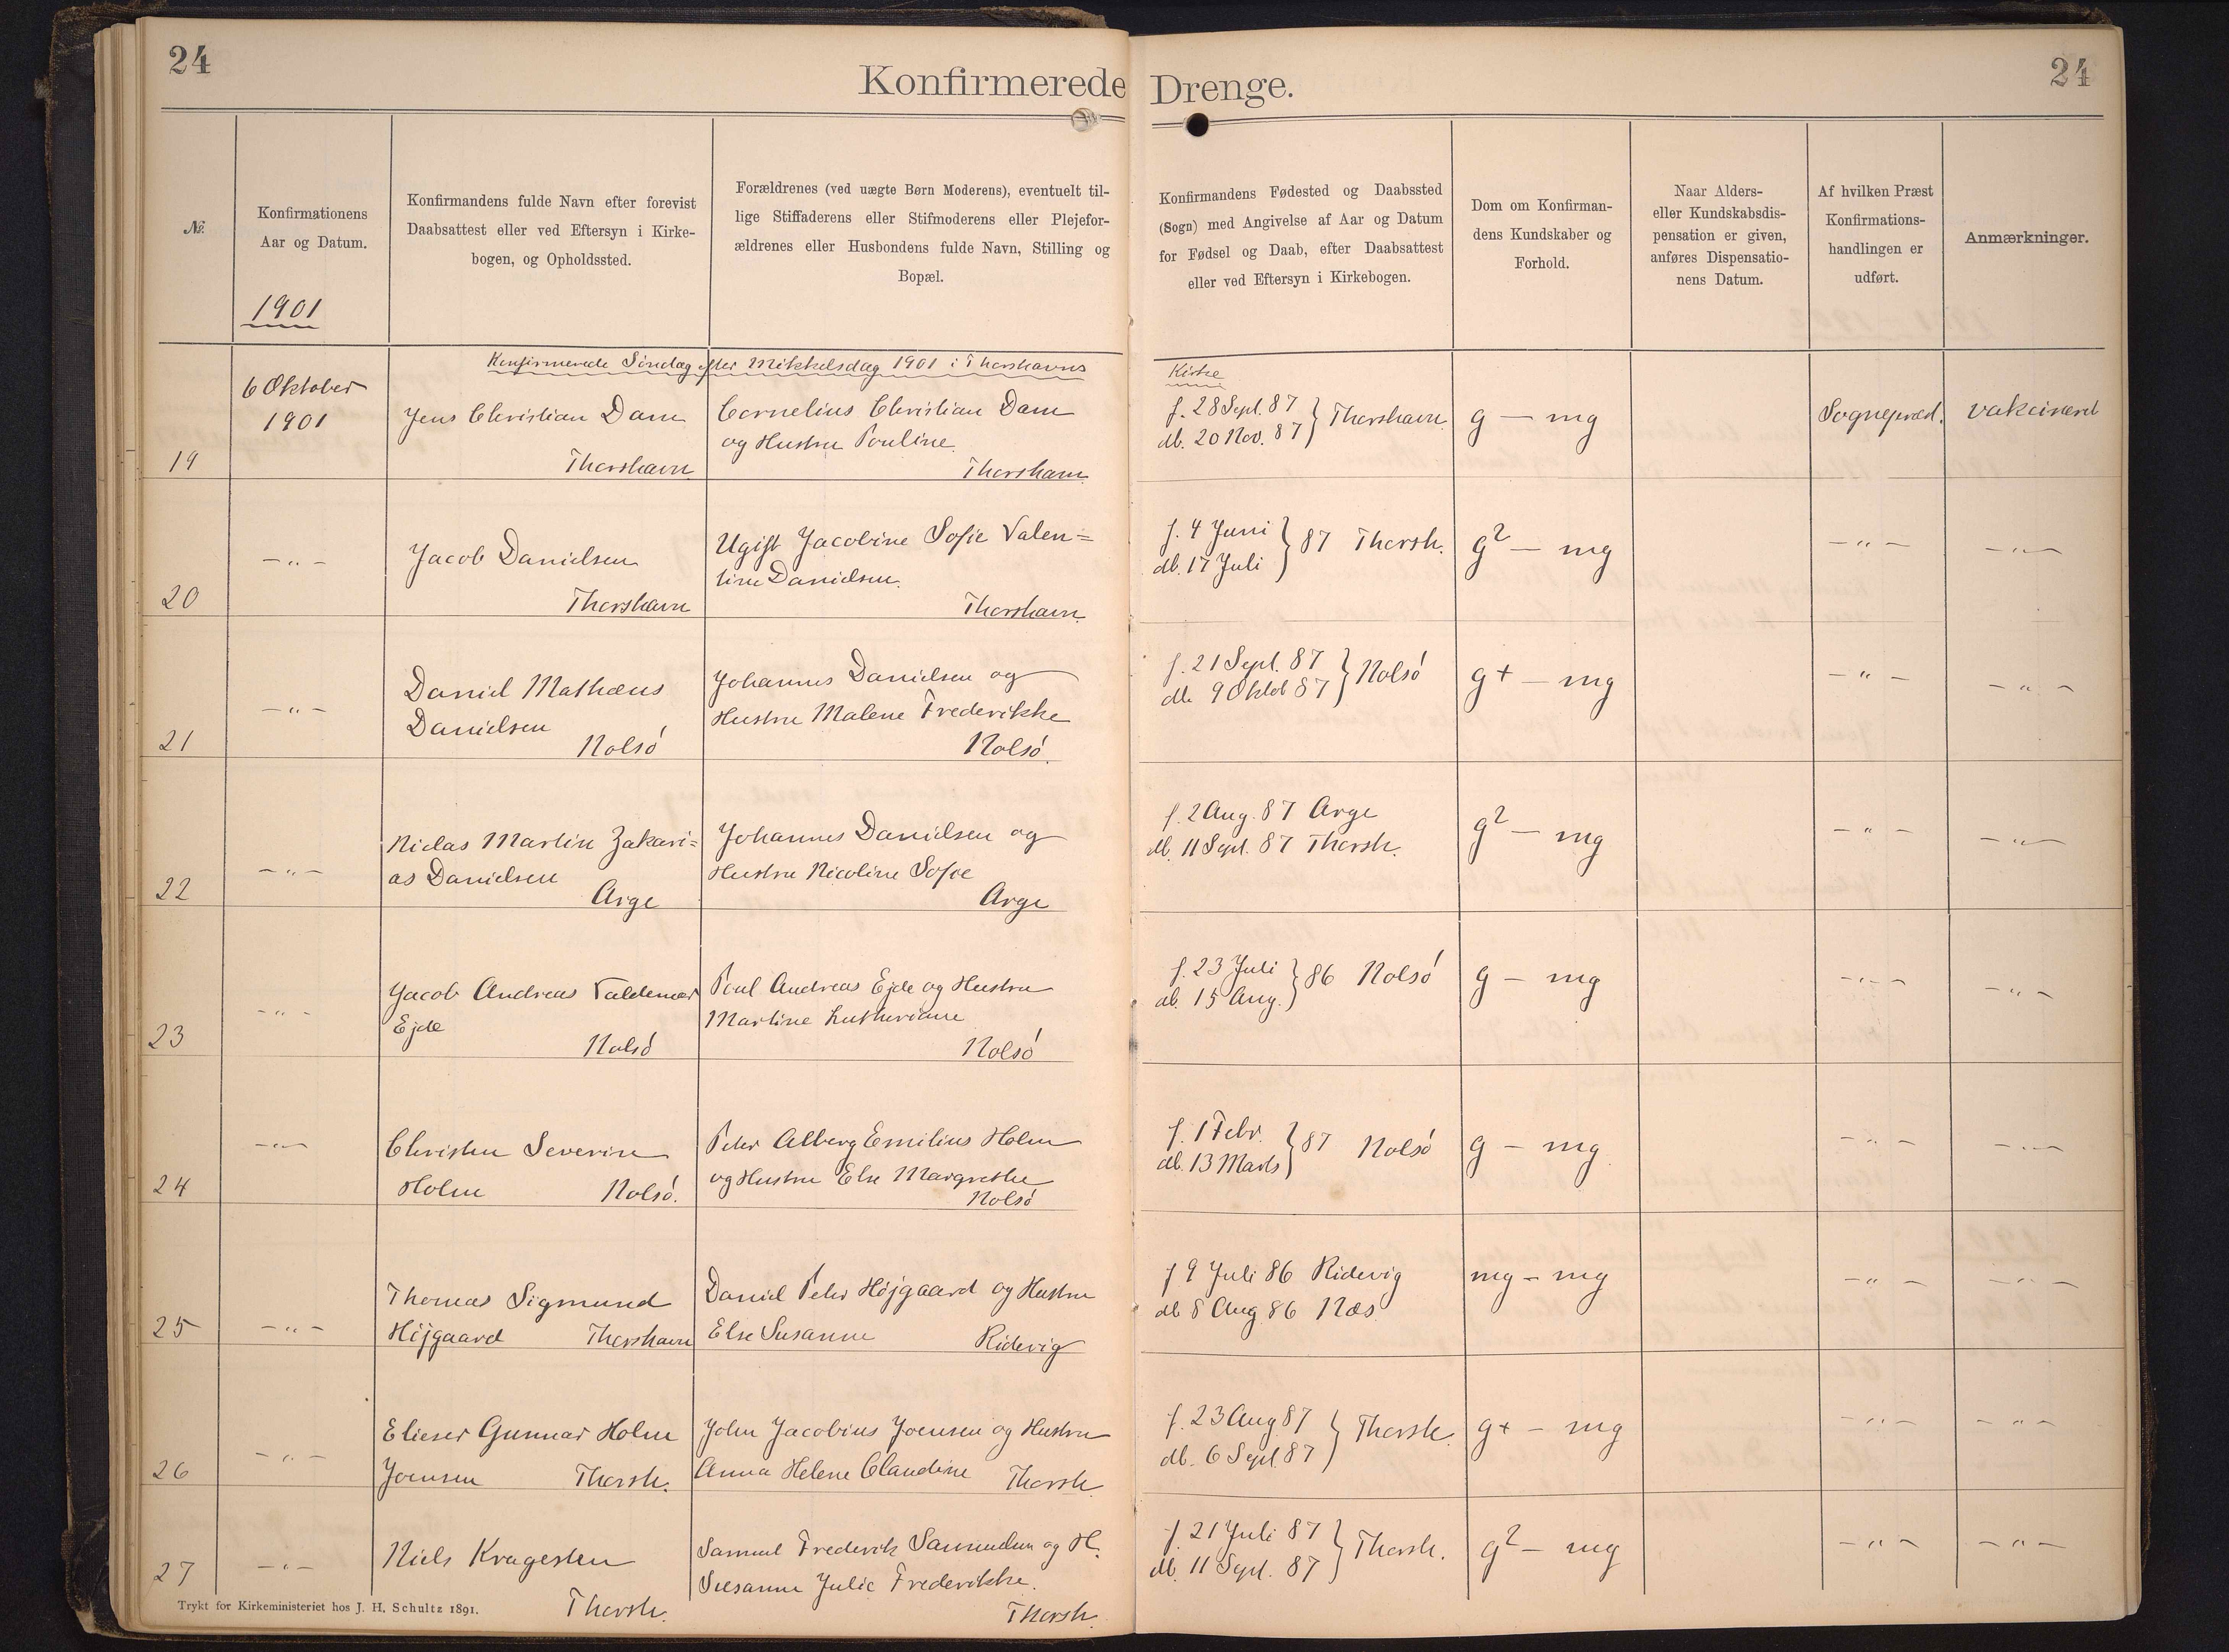 24
24
Konfirmerede Drenge.
№.
Konfirmationens
Aar og Datum.
1901
Konfirmandens fulde Navn efter forevist
Daabsattest eller ved Eftersyn i Kirke-
bogen, og Opholdssted.
Forældrenes (ved uægte Børn Moderens), eventuelt til-
lige Stiffaderens eller Stifmoderens eller Plejefor-
ældrenes eller Husbondens fulde Navn, Stilling og
Bopæl.
Konfirmandens Fødested og Daabssted
(Sogn) med Angivelse af Aar og Datum
for Fødsel og Daab, efter Daabsattest
eller ved Eftersyn i Kirkebogen.
Dom om Konfirman-
dens Kundskaber og
Forhold.
Naar Alders-
eller Kundskabsdis-
pensation er given,
anføres Dispensatio-
nens Datum.
Af hvilken Præst
Konfirmations-
handlingen er
udført.
Anmærkninger.
Konfirmerede Søndag efter Mikkelsdag 1901 i Thorshavns Kirke
19
6 Oktober
1901
Jens Christian Dam
Thorshavn
Cornelius Christian Dam
og Hustru Pouline.
Thorshavn
f. 28 Sept. 87
db. 20 Nov. 87 } Thorshavn
g — mg
Sognepræst.
vakcineret
20
— „ —
Jacob Danielsen
Thorshavn
Ugift Jacobine Sofie Valen=
tine Danielsen.
Thorshavn.
f. 4 Juni
db. 17 Juli } 87 Thorsh.
g2 — mg
— „ —
— „ —
21
— „ —
Daniel Mathæus
Danielsen
Nolsó
Johannes Danielsen og
Hustru Malene Frederikke
Nolsó.
f. 21 Sept. 87
db. 9 Oktob 87 } Nolsó
g+ — mg
— „ —
— „ —
22
— „ —
Niclas Martin Zakari=
as Danielsen
Arge
Johannes Danielsen og
Hustru Nicoline Sofie
Arge
f. 2 Aug. 87 Arge
db. 11 Sept. 87 Thorsh.
g2 — mg
— „ —
— „ —
23
— „ —
Jacob Andreas Valdemar
Ejde
Nolsó
Poul Andreas Ejde og Hustru
Martine Lutheriane
Nolsó
f. 23 Juli
db. 15 Aug. } 86 Nolsó
g — mg
— „ —
— „ —
24
— „ —
Christen Severin
Holm Nolsó.
Peter Alberg Emilius Holm
og Hustru Else Margrethe
Nolsó
f. 1 Febr.
db. 13 Marts } 87 Nolsó
g — mg
— „ —
— „ —
25
— „ —
Thomas Sigmund
Højgaard Thorshavn
Daniel Peter Højgaard og Hustru
Else Susanne Ridevig
f 9 Juli 86 Ridevig
db 8 Aug 86 Næs
mg — mg
— „ —
— „ —
26
— „ —
Elieser Gunnar Holm
Joensen Thorsh.
John Jacobius Joensen og Hustru
Anna Helene Claudine Thorsh.
f. 23 Aug 87
db. 6 Sept 87 } Thorsh.
g+ — mg
— „ —
— „ —
27
— „ —
Niels Kragesten
Thorsh.
Samuel Frederik Samuelsen og H.
Susanne Julie Frederikke.
Thorsh.
f. 21 Juli 87
db. 11 Sept. 87 } Thorsh.
g2 — mg
— „ —
— „ —
Trykt for Kirkeministeriet hos J. H. Schultz 1891.